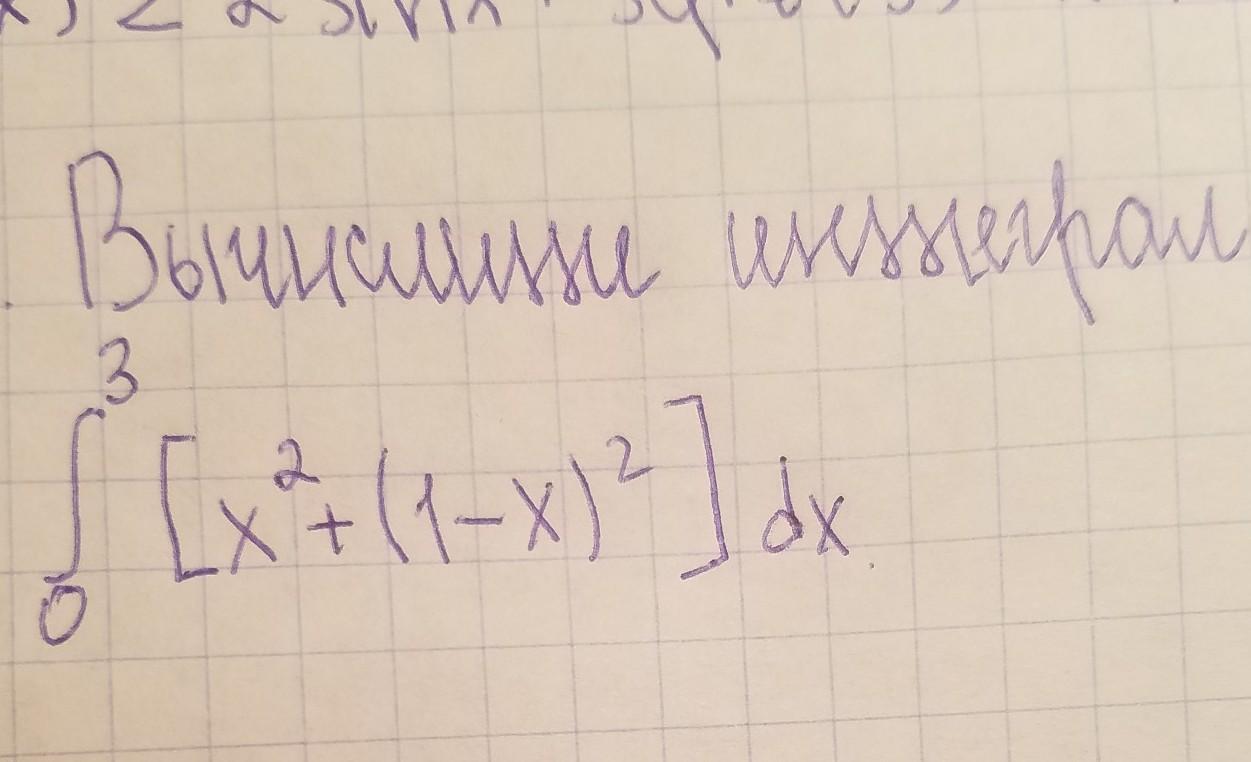 Вычислить интеграл
∫₀³ [x² + (1-x)²] dx.